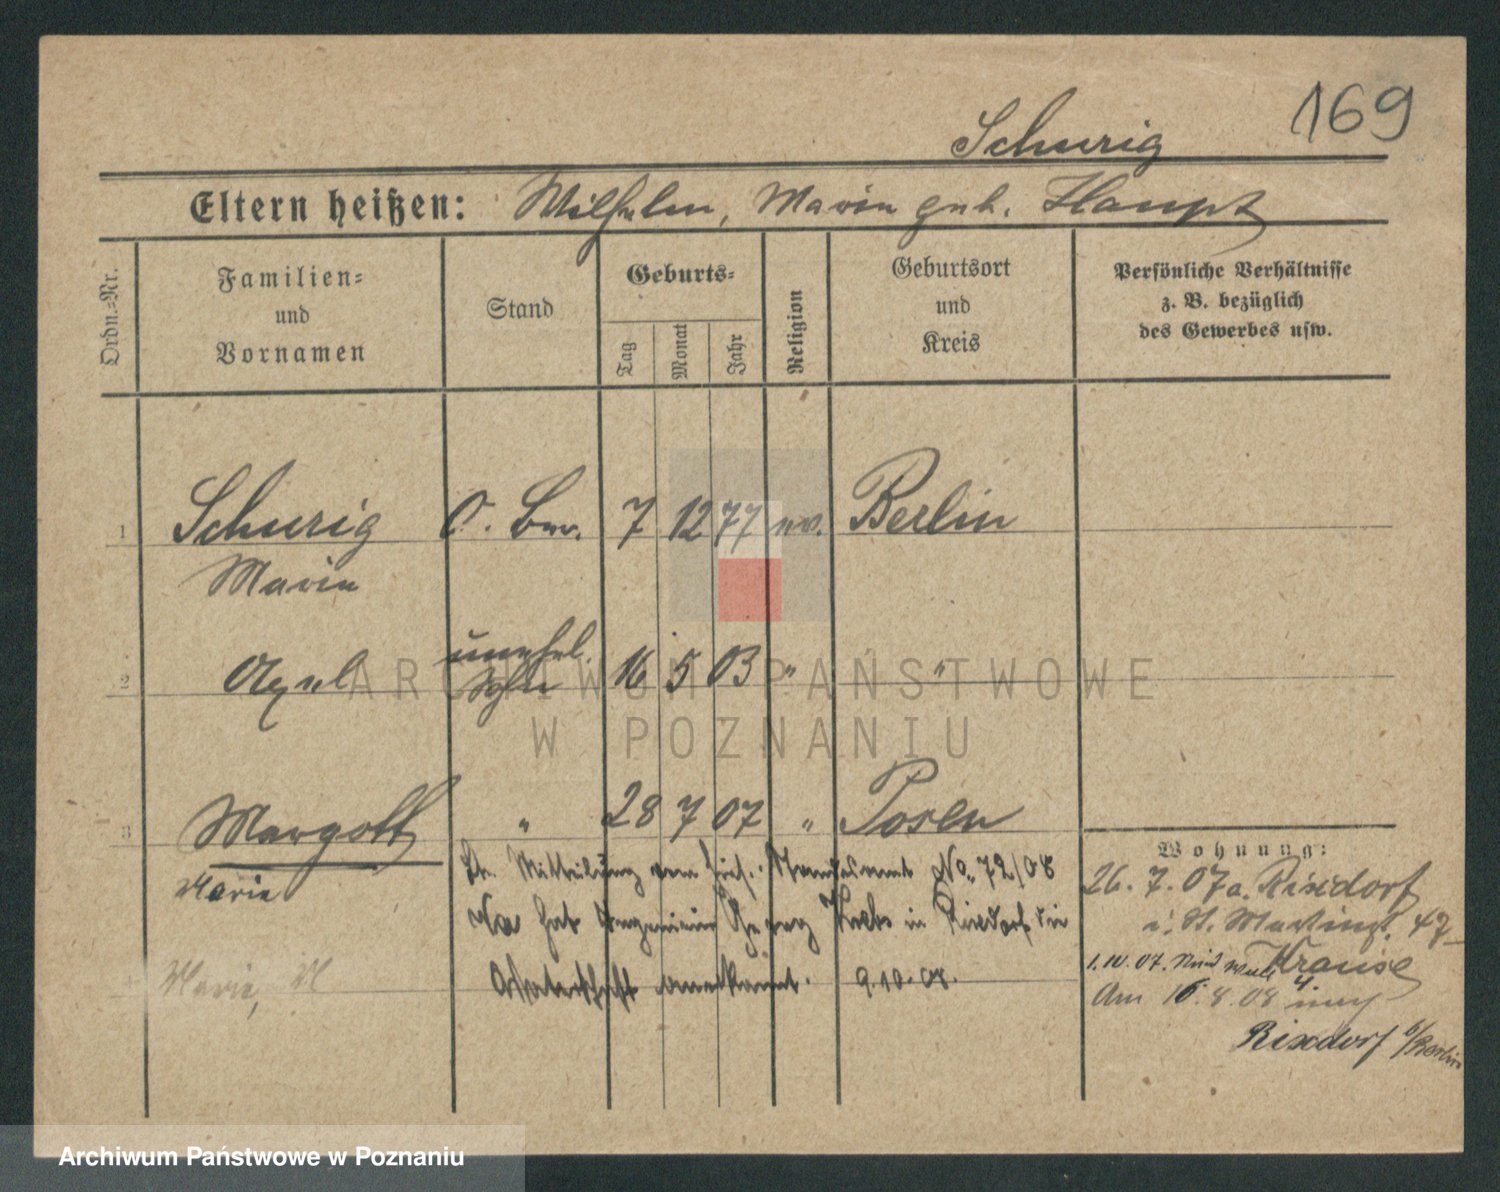 169
Schurig
Eltern heißen: Wilhelm, Marie geb. Haupt
Ordn.=Nr.
Familien=
und
Vornamen
Stand
Geburts=
Tag
Monat
Jahr
Religion
Geburtsort
und
Kreis
Persönliche Verhältnisse
z. B. bezüglich
des Gewerbes usw.
1 Schurig O. Ber. 7 12 77 ev. Berlin
Marie
unehel.
2 Axel Sohn 16 5 03 " "
3 Margott " 28 7 07 " Posen
Marie
Lt. Mitteilung vom hies. Standesamt No. 72/08
hat Ingenieur Georg in Rixdorf die
Vaterschaft anerkannt. 9.10.08.
Marie, M
Wohnung:
26. 7. 07 a. Rixdorf
i. St. Martinst. 47
1.10.07. Krause
Am 16.8.08
Rixdorf b/Berlin
ARCHIWUM PAŃSTWOWE
W POZNANIU
Archiwum Państwowe w Poznaniu